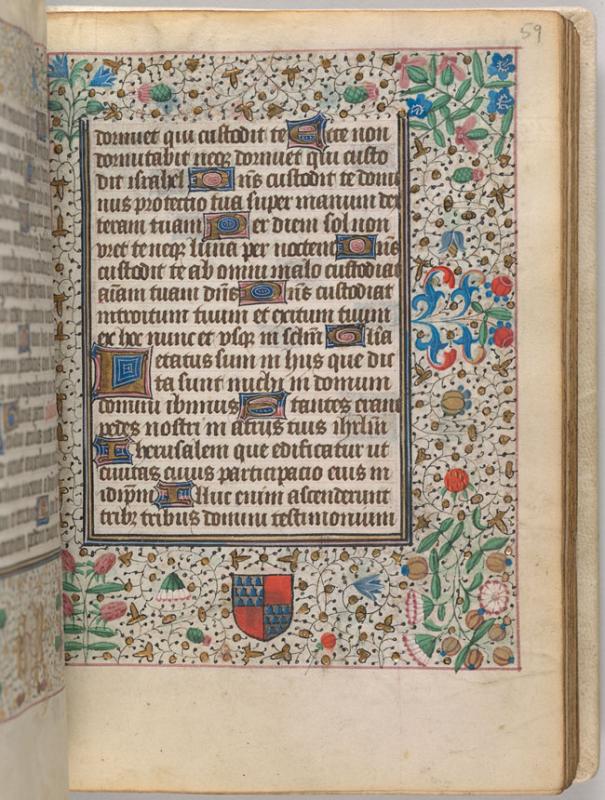 59
dormiet qui custodit te Ecce non
dormitabit neq; dormiet qui custo
dit israhel Dn̄s custodit te domi
nus protectio tua super manum dex
teram tuam Per diem sol non
vret te neq; luna per noctem Dn̄s
custodit te ab omni malo custodiat
aīam tuam dn̄s Dn̄s custodiat
introitum tuum et exitum tuum
ex hoc nunc et vsq; in sclm̄ Glīa
Letatus sum in hijs que dic
ta sunt michi in domum
domini ibimus Stantes erant
pedes nostri in atrijs tuis ihrlm̄
Iherusalem que edificatur ut
ciuitas cuius participacio eius in
idip̄m Illuc enim ascenderunt
trib; tribus domini testimonium